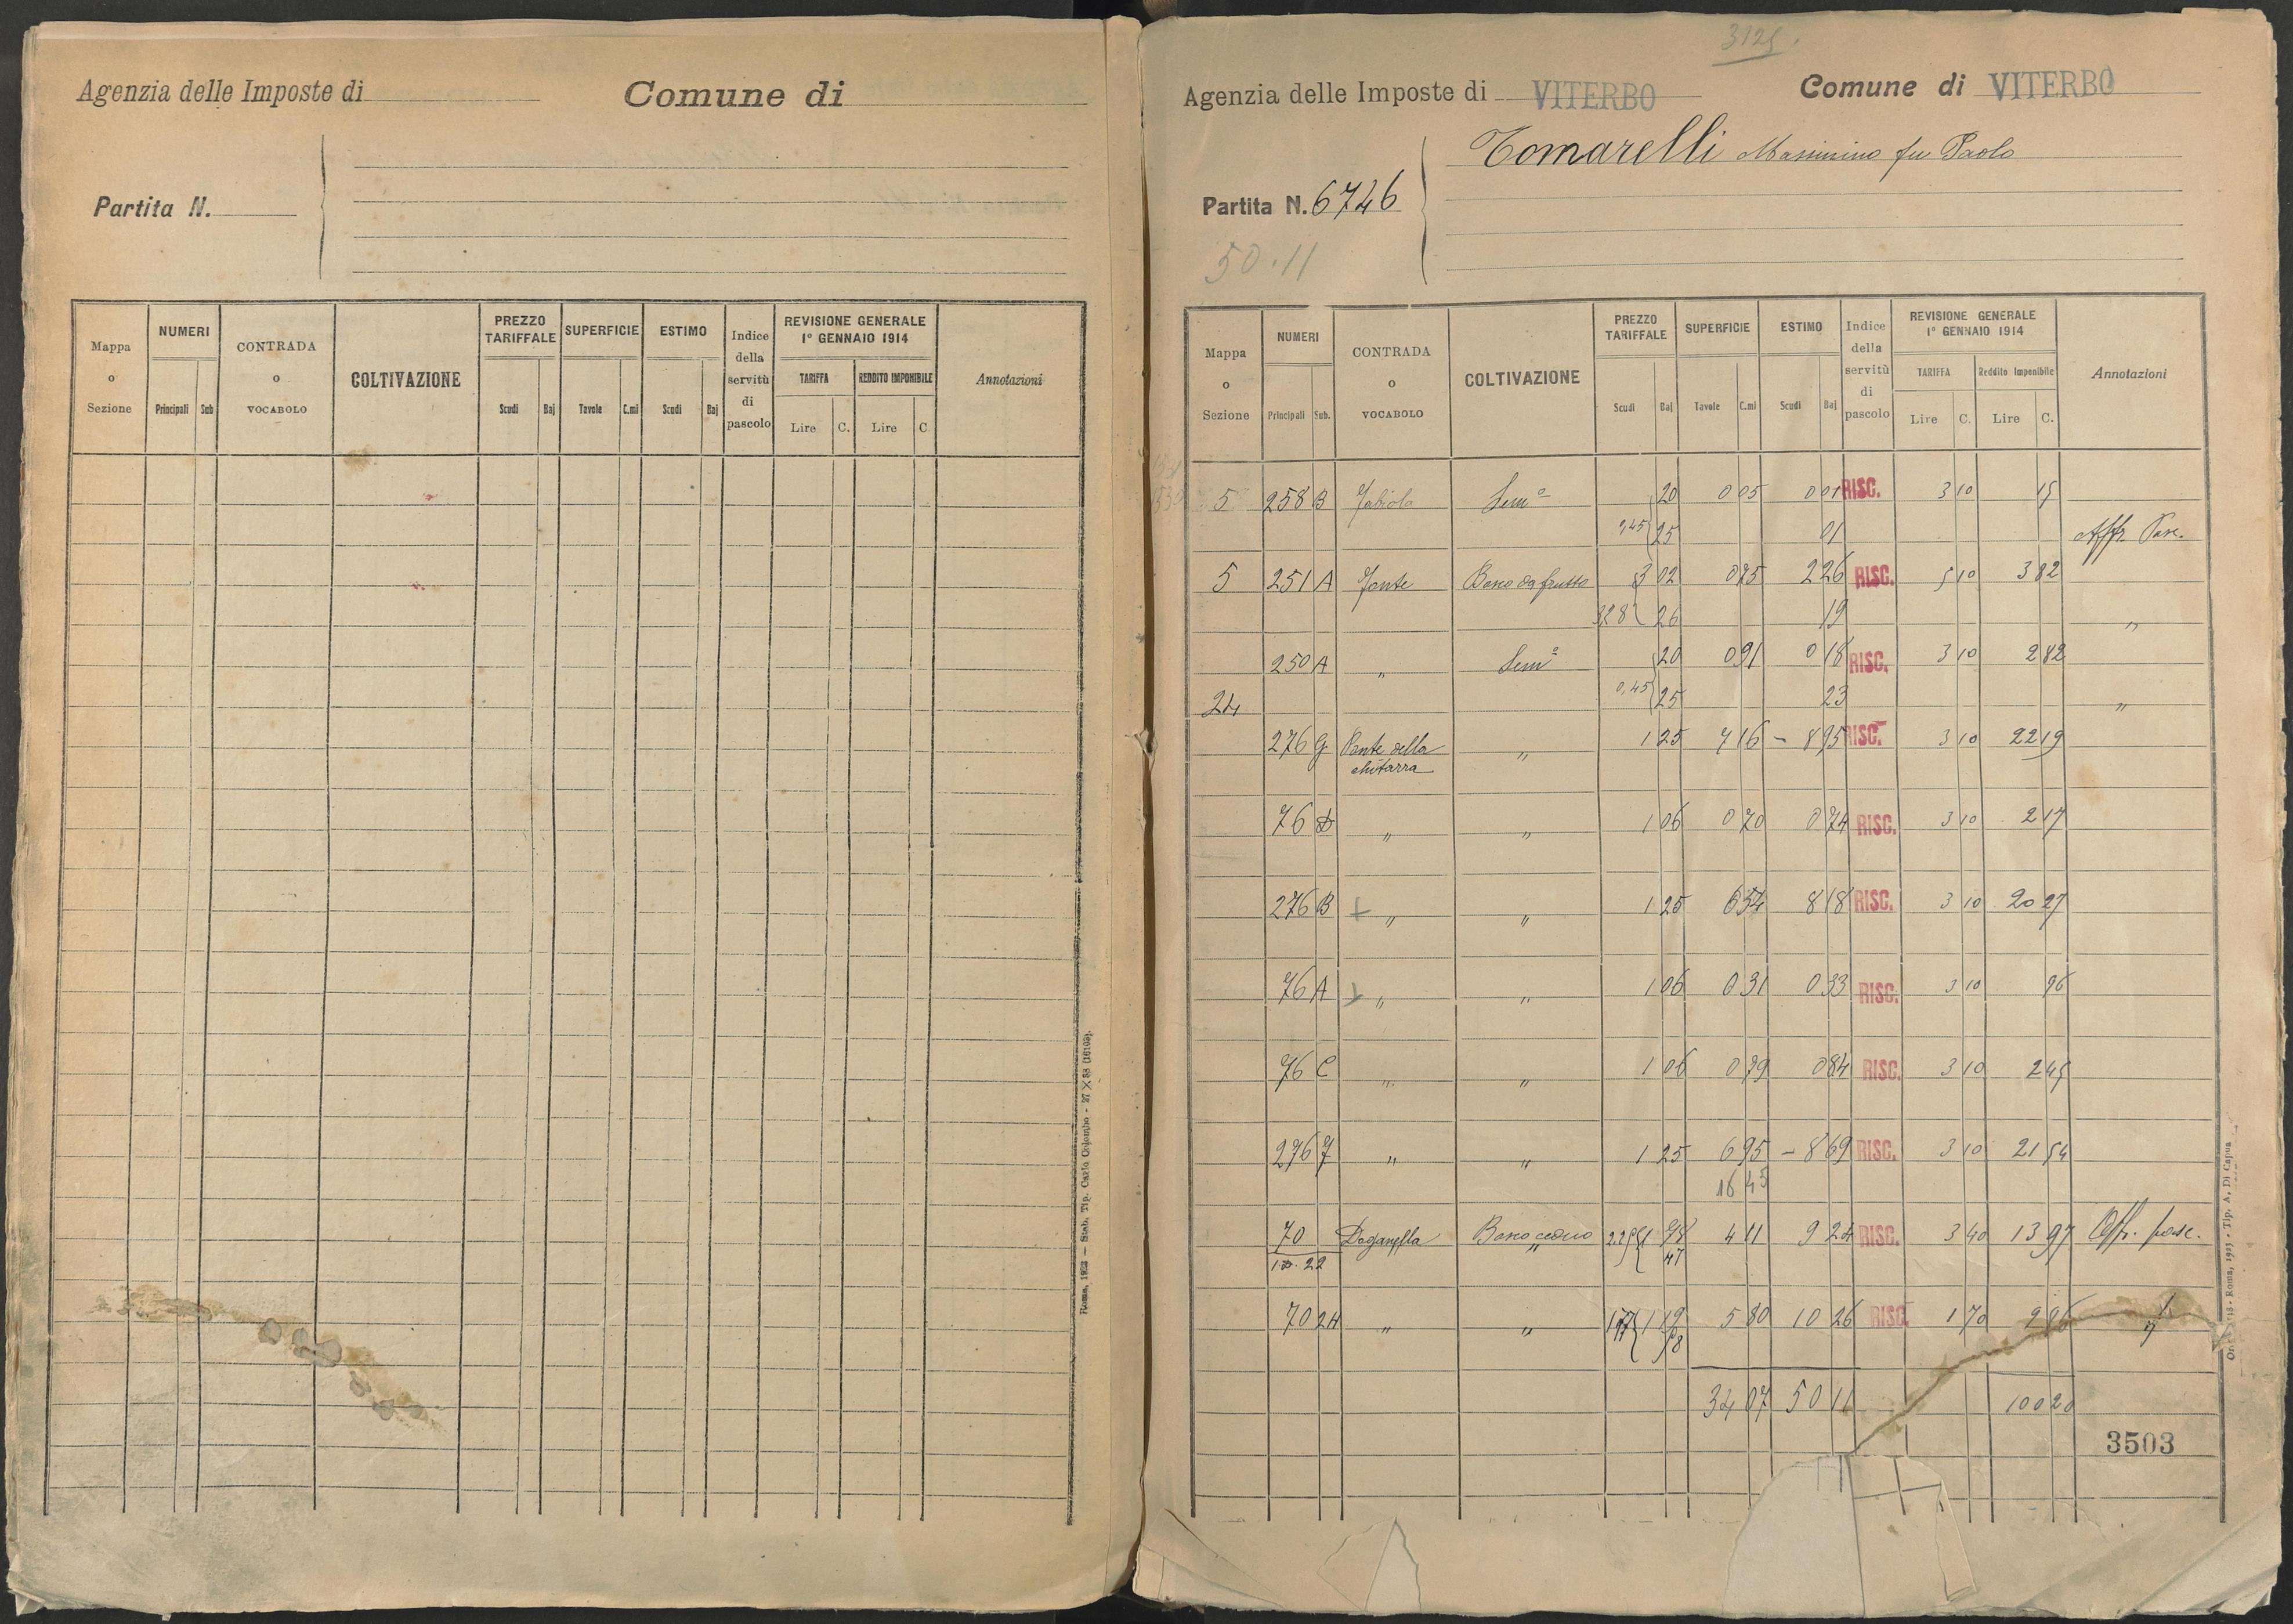 Agenzia delle Imposte di
Comune di
Partita N.
Mappa o Sezione
NUMERI
Principali Sub
CONTRADA o VOCABOLO
COLTIVAZIONE
PREZZO TARIFFALE
Scudi Baj
SUPERFICIE
Tavole C.mi
ESTIMO
Scudi Baj
Indice della servitù di pascolo
REVISIONE GENERALE
1° GENNAIO 1914
TARIFFA
Lire C.
REDDITO IMPONIBILE
Lire C
Annotazioni
Roma, 1922 — Stab. Tip. Carlo Colombo - 27 X 38 (16109).
3125.
Agenzia delle Imposte di VITERBO
Comune di VITERBO
Tomarelli Massimino fu Paolo
Partita N. 6746
50.11
Mappa o Sezione
NUMERI
Principali Sub.
CONTRADA o VOCABOLO
COLTIVAZIONE
PREZZO TARIFFALE
Scudi Baj
SUPERFICIE
Tavole C.mi
ESTIMO
Scudi Baj
Indice della servitù di pascolo
REVISIONE GENERALE
1° GENNAIO 1914
TARIFFA
Lire C.
Reddito Imponibile
Lire C.
Annotazioni
5 258 B Sem° 20 0 05 0 01 RISC. 3 10 15
0,45 25 01 Affr. Pasc.
5 251 A Fonte Bosco da frutto 3 02 0 75 2 26 RISC. 5 10 3 82
3,28 26 19 "
250 A " Sem° 20 0 91 0 18 RISC. 3 10 2 82
24 0,45 25 23 "
276 G Ponte della " 1 25 7 16 - 8 95 RISC. 3 10 22 19
chitarra
76 D " " 1 06 0 70 0 74 RISC. 3 10 2 17
276 B + " " 1 25 6 54 8 18 RISC. 3 10 20 27
76 A + " " 1 06 0 31 0 33 RISC. 3 10 96
76 C " " 1 06 0 79 0 84 RISC. 3 10 2 45
276 F " " 1 25 6 95 - 8 69 RISC. 3 10 21 54
16 45
70 Doganella Bosco ceduo 2.25 1 78 4 11 9 24 RISC. 3 40 13 97 Aff. pasc.
47
70 24 " " 1 19 5 80 10 26 RISC. 1 70 9 86 "
58
34 07 50 11 100 20
3503
Roma, 1915 - Tip. A. Di Capua